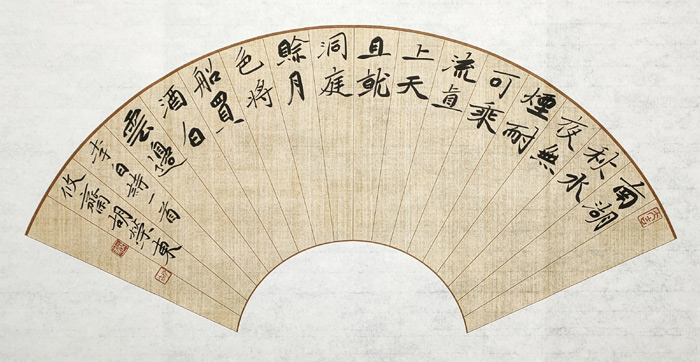 南湖
秋水
夜無
煙耐
可乘
流直
上天
且就
洞庭
賒月
色將
船買
酒白
雲邊
李白詩一首
攸齋胡榮東